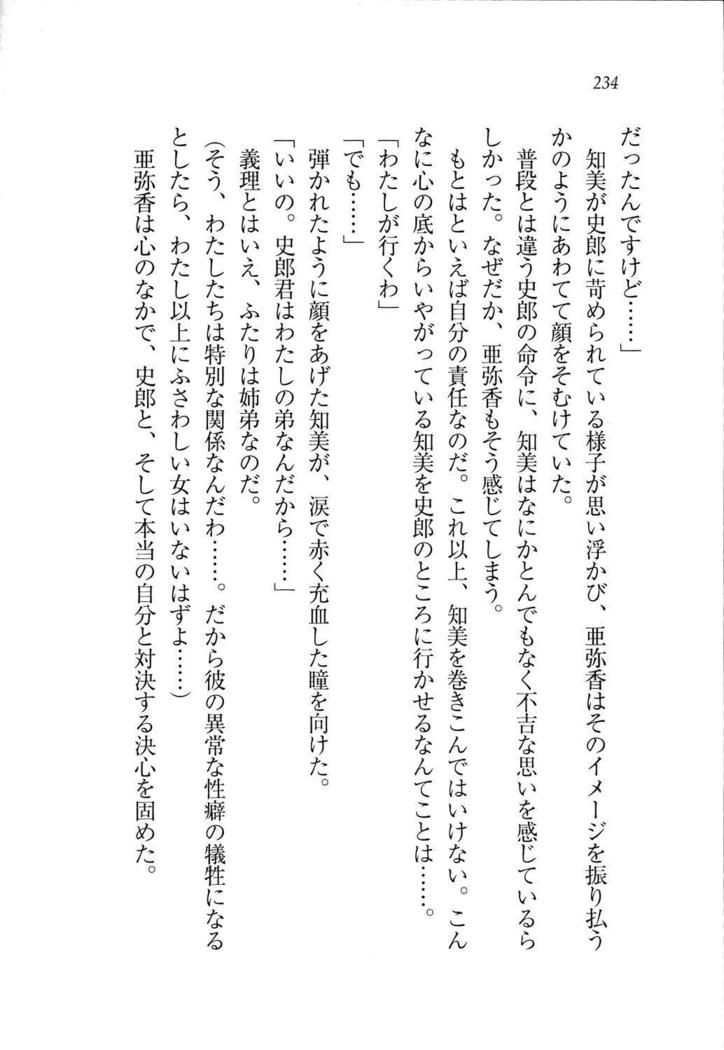 234
だったんですけど……」
　知美が史郎に苛められている様子が思い浮かび、亜弥香はそのイメージを振り払う
かのようにあわてて顔をそむけていた。
　普段とは違う史郎の命令に、知美はなにかとんでもなく不吉な思いを感じているら
しかった。なぜだか、亜弥香もそう感じてしまう。
　もとはといえば自分の責任なのだ。これ以上、知美を巻きこんではいけない。こん
なに心の底からいやがっている知美を史郎のところに行かせるなんてことは……。
「わたしが行くわ」
「でも……」
　弾かれたように顔をあげた知美が、涙で赤く充血した瞳を向けた。
「いいの。史郎君はわたしの弟なんだから……」
　義理とはいえ、ふたりは姉弟なのだ。
（そう、わたしたちは特別な関係なんだわ……。だから彼の異常な性癖の犠牲になる
としたら、わたし以上にふさわしい女はいないはずよ……）
　亜弥香は心のなかで、史郎と、そして本当の自分と対決する決心を固めた。